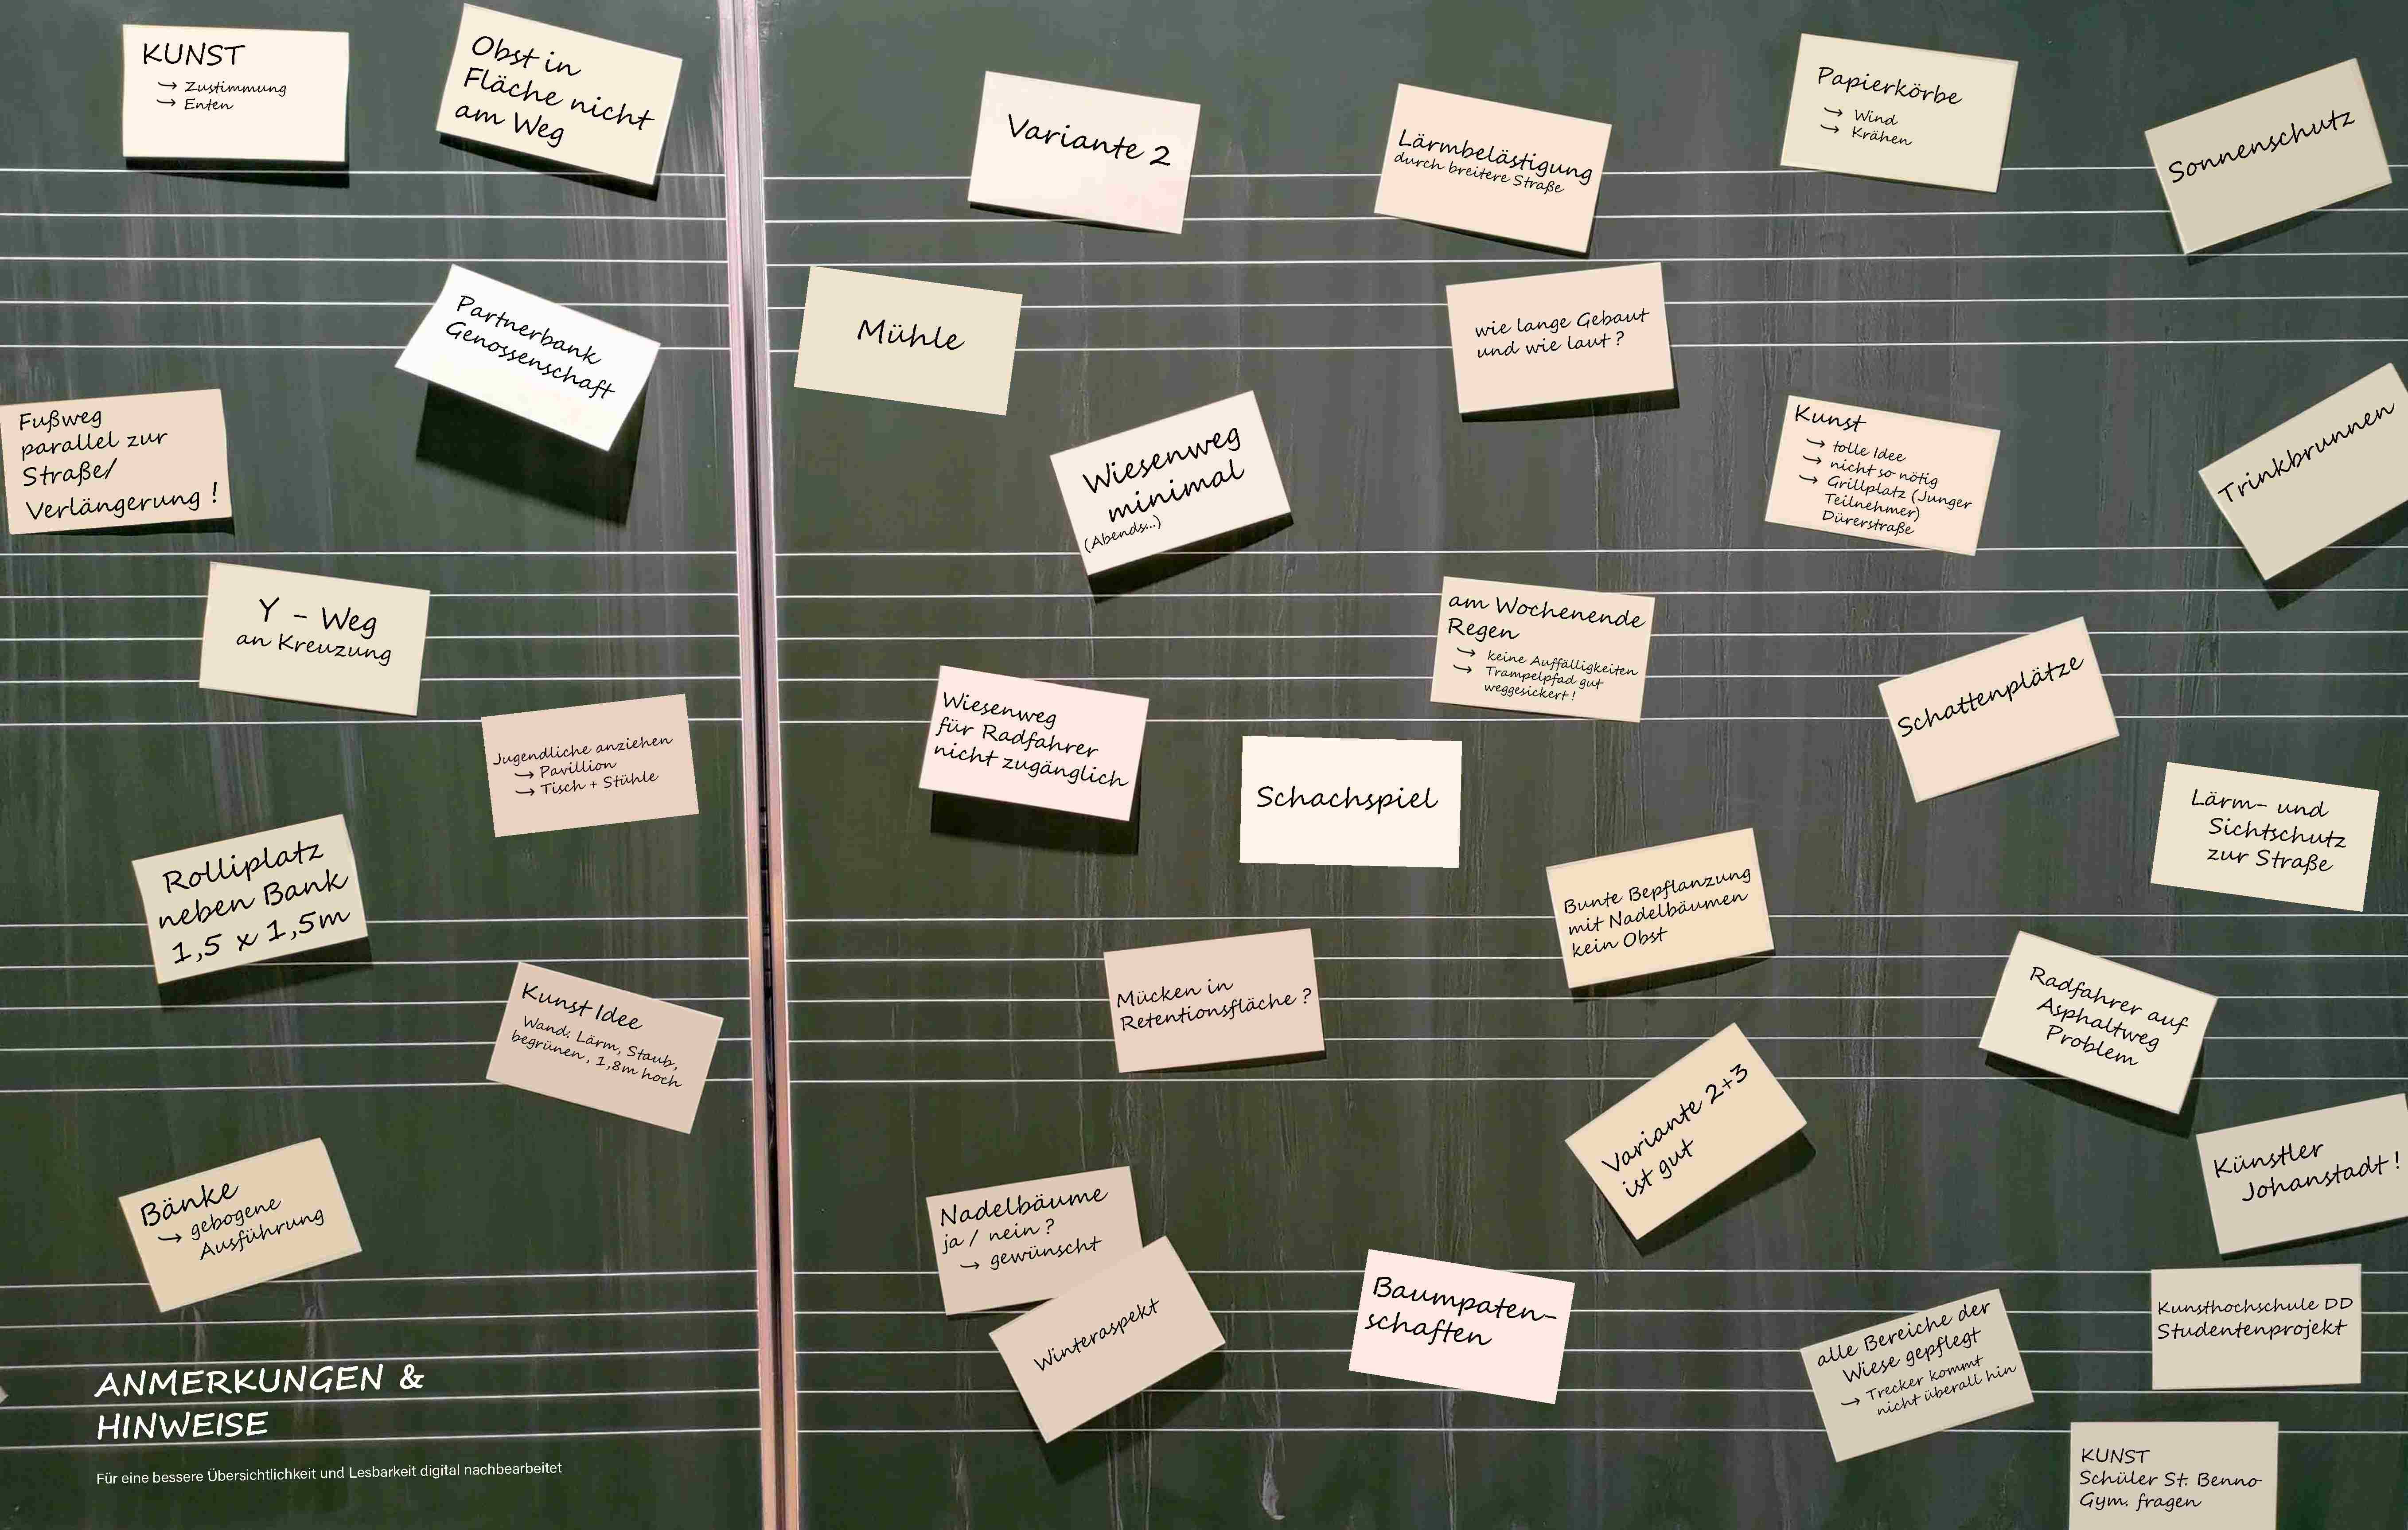 KUNST
→ Zustimmung
→ Enten
Obst in
Fläche nicht
am Weg
Partnerbank
Genossenschaft
Fußweg
parallel zur
Straße/
Verlängerung !
Y - Weg
an Kreuzung
Jugendliche anziehen
→ Pavillion
→ Tisch + Stühle
Rolliplatz
neben Bank
1,5 x 1,5m
Kunst Idee
Wand: Lärm, Staub,
begrünen, 1,8m hoch
Bänke
→ gebogene
Ausführung
ANMERKUNGEN &
HINWEISE
Für eine bessere Übersichtlichkeit und Lesbarkeit digital nachbearbeitet
Variante 2
Lärmbelästigung
durch breitere Straße
Papierkörbe
→ Wind
→ Krähen
Sonnenschutz
Mühle
wie lange Gebaut
und wie laut ?
Wiesenweg
minimal
(Abends...)
Kunst
→ tolle Idee
→ nicht so nötig
→ Grillplatz (Junger
Teilnehmer)
Dürerstraße
Trinkbrunnen
am Wochenende
Regen
→ keine Auffälligkeiten
→ Trampelpfad gut
weggesickert !
Wiesenweg
für Radfahrer
nicht zugänglich
Schachspiel
Schattenplätze
Lärm- und
Sichtschutz
zur Straße
Bunte Bepflanzung
mit Nadelbäumen
kein Obst
Mücken in
Retentionsfläche ?
Radfahrer auf
Asphaltweg
Problem
Variante 2+3
ist gut
Künstler
Johanstadt !
Nadelbäume
ja / nein ?
→ gewünscht
Winteraspekt
Baumpaten-
schaften
alle Bereiche der
Wiese gepflegt
→ Trecker kommt
nicht überall hin
Kunsthochschule DD
Studentenprojekt
KUNST
Schüler St. Benno
Gym. fragen